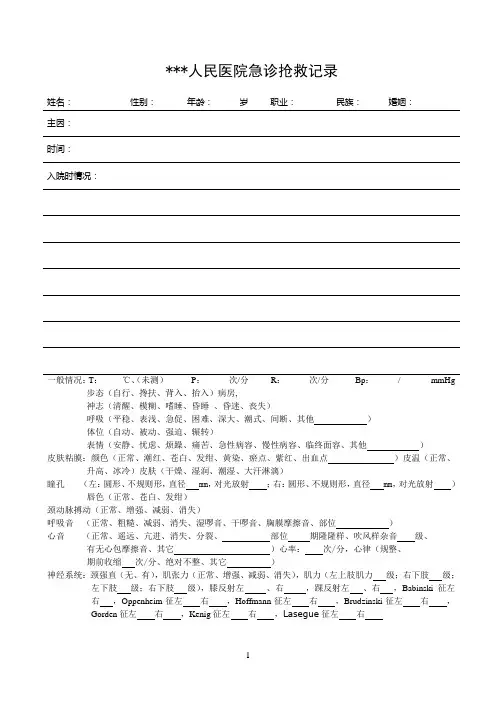 ***人民医院急诊抢救记录
姓名： 性别： 年龄： 岁 职业： 民族： 婚姻：
主因：
时间：
入院时情况：
一般情况：T： ℃、（未测） P： 次/分 R： 次/分 Bp： / mmHg
步态（自行、搀扶、背入、抬入）病房，
神志（清醒、模糊、嗜睡、昏睡 、昏迷、丧失）
呼吸（平稳、表浅、急促、困难、深大、潮式、间断、其他 ）
体位（自动、被动、强迫、辗转）
表情（安静、忧虑、烦躁、痛苦、急性病容、慢性病容、临终面容、其他 ）
皮肤粘膜：颜色（正常、潮红、苍白、发绀、黄染、瘀点、紫红、出血点 ）皮温（正常、
升高、冰冷）皮肤（干燥、湿润、潮湿、大汗淋漓）
瞳孔 （左：圆形、不规则形，直径 mm，对光放射 ；右：圆形、不规则形，直径 mm，对光放射 ）
唇色（正常、苍白、发绀）
颈动脉搏动（正常、增强、减弱、消失）
呼吸音 （正常、粗糙、减弱、消失、湿啰音、干啰音、胸膜摩擦音、部位 ）
心音 （正常、遥远、亢进、消失、分裂、 部位 期隆隆样、吹风样杂音 级、
有无心包摩擦音、其它 ）心率： 次/分，心律（规整、
期前收缩 次/分、绝对不整、其它 ）
神经系统：颈强直（无、有），肌张力（正常、增强、减弱、消失），肌力（左上肢肌力 级；右下肢 级；
左下肢 级；右下肢 级），膝反射左 、右 ，踝反射左 、右 ，Babinski 征左
右 ，Oppenheim 征左 右 ，Hoffmann 征左 右 ，Brudzinski 征左 右 ，
Gorden 征左 右 ，Kenig 征左 右 ，Lasegue 征左 右
1